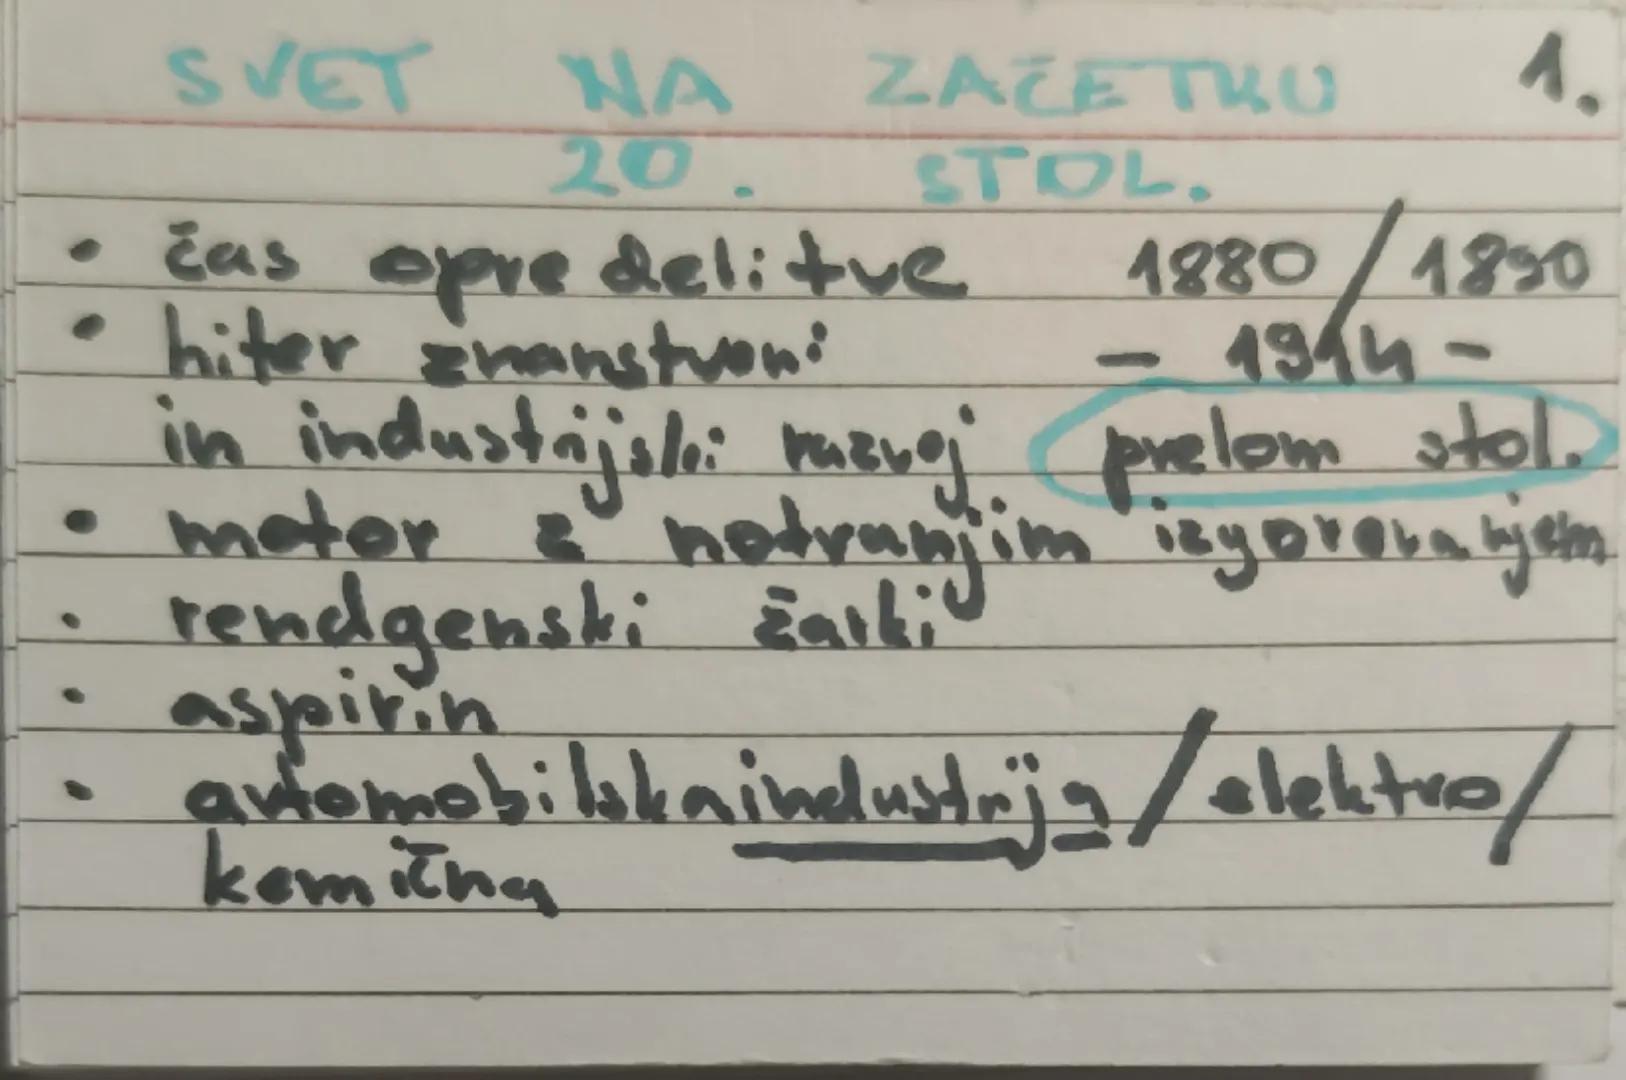 SVET NA ZAČETKU 1.
20. STOL.
• čas opredelitve 1880/1890
• hiter znanstveni - 1914 -
in industrijski razvoj prelom stol.
• motor z notranjim izgorevanjem
• rendgenski žarki
• aspirin
• avtomobilska industrija / elektro /
kemična